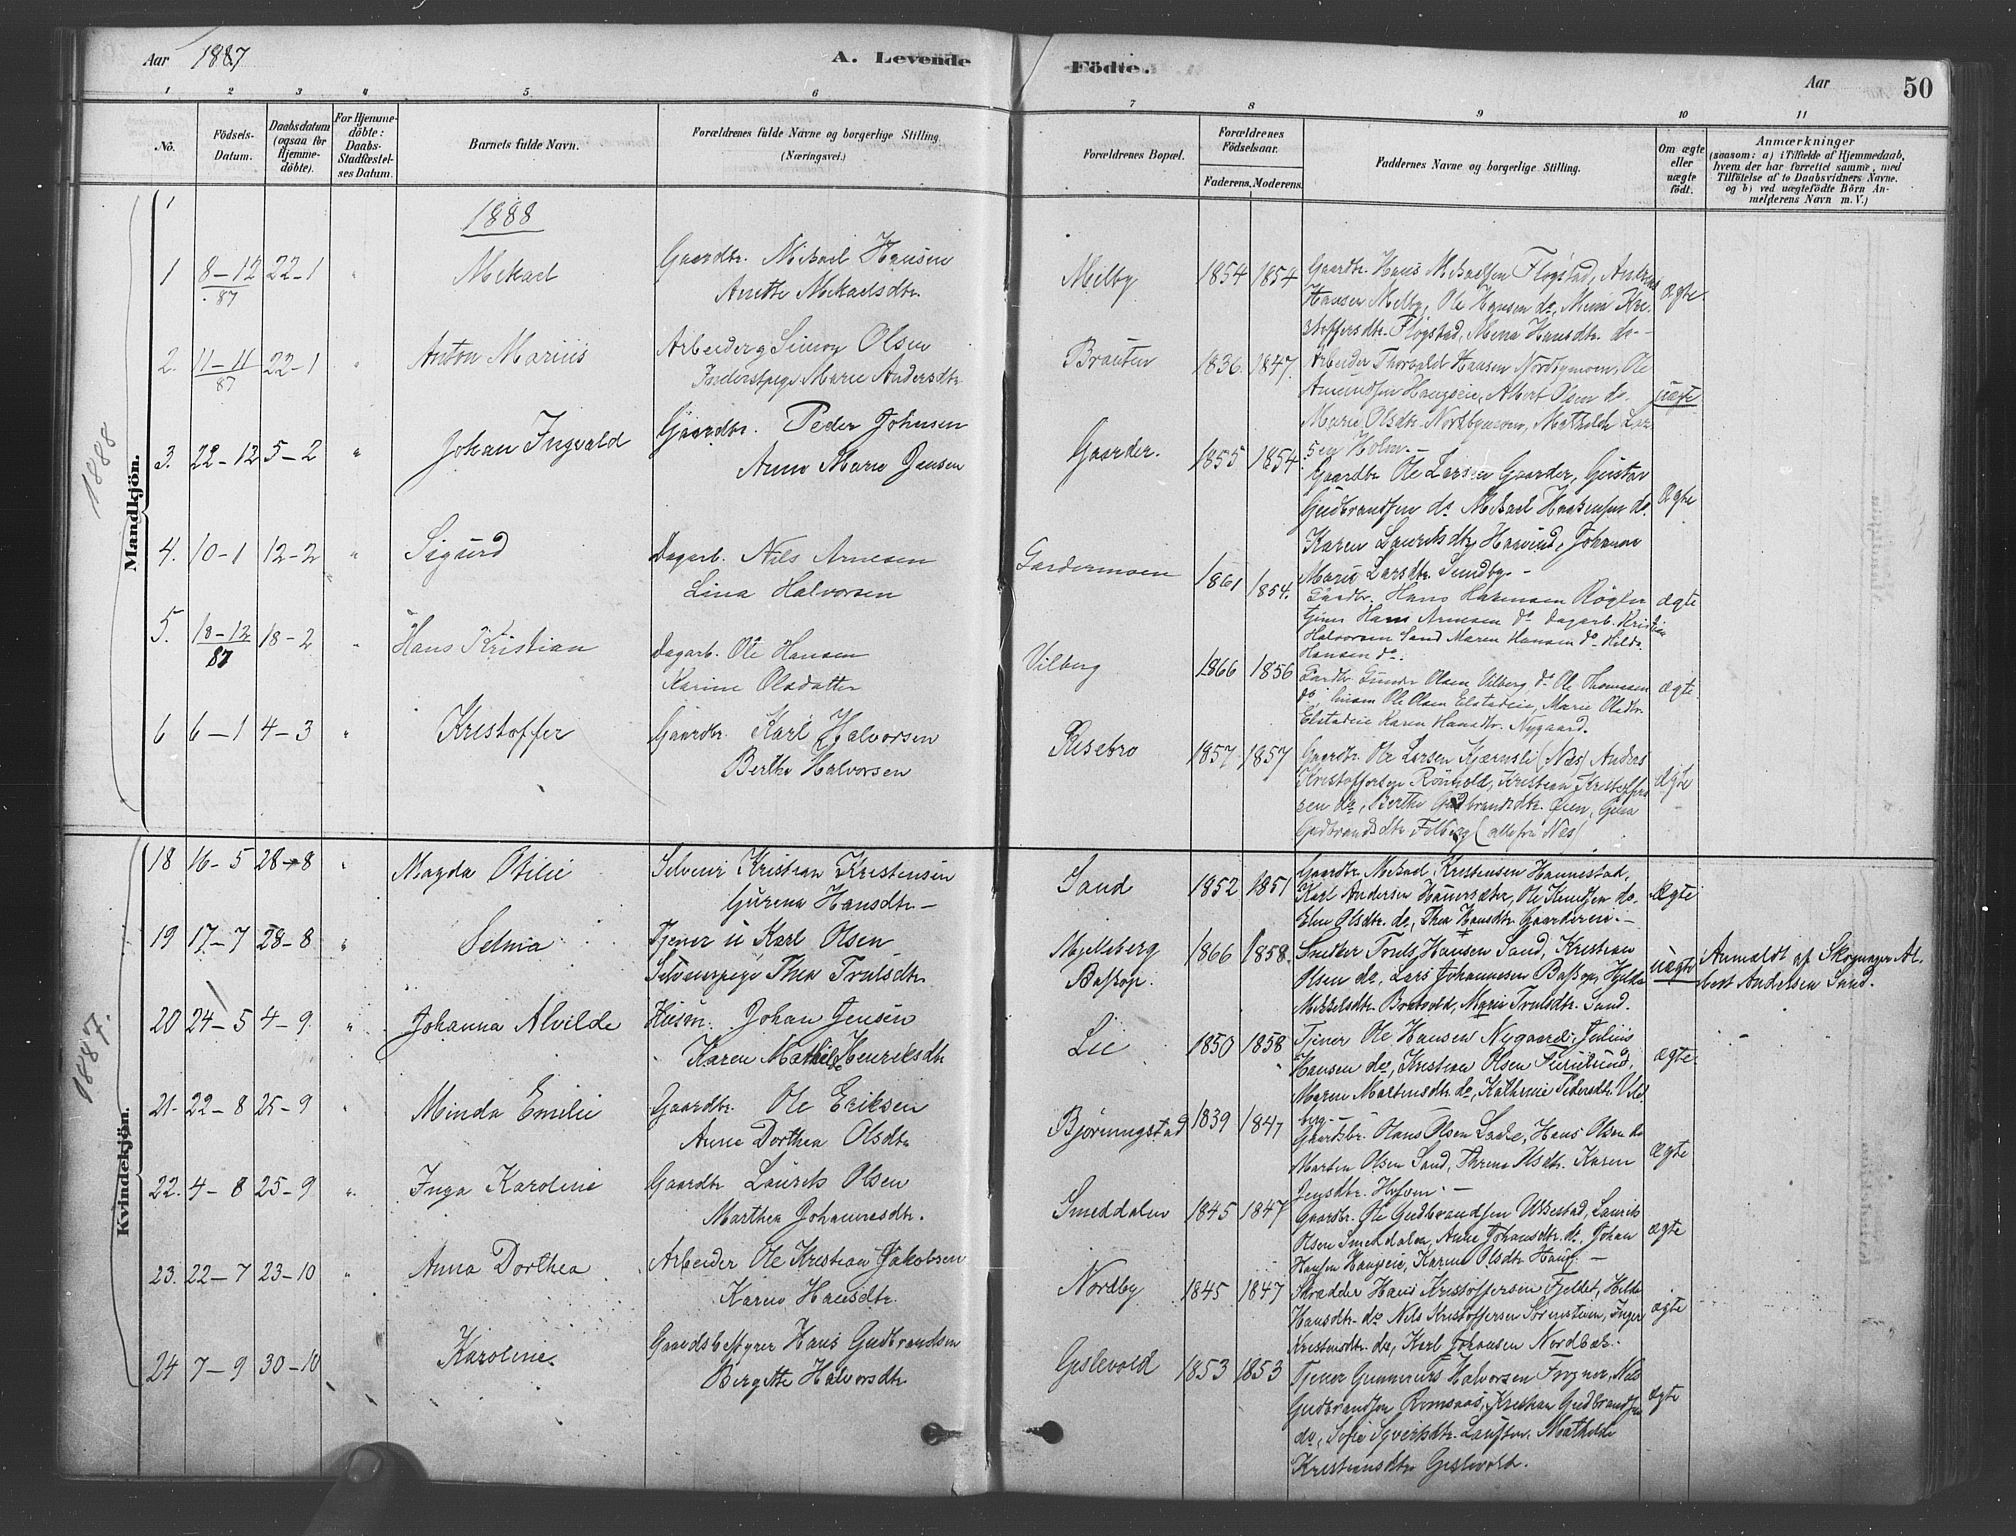 Aar 1887
A. Levende
Födte.
Aar
50
1 2 3 4 5 6 7 8 9 10 11
No.
Födsels-Datum.
Daabsdatum (ogsaa for Hjemme-döbte).
For Hjemme-döbte: Daabs-Stadfæstel-ses Datum.
Barnets fulde Navn.
Forældrenes fulde Navne og borgerlige Stilling.
(Næringsvei.)
Forældrenes Bopæl.
Forældrenes Födselsaar.
Faderens. Moderens.
Faddernes Navne og borgerlige Stilling.
Om ægte eller uægte födt.
Anmærkninger
(saasom: a) i Tilfælde af Hjemmedaab,
hvem der har forrettet samme, med
Tilföielse af to Daabsvidners Navne.
og b) ved uægtefödte Börn An-
melderens Navn m. V.)
1888
Mandkjön.
1888
1 8-12/87 22-1 " Mekael
Gaardbr. Mikael Hansen
Anette Mekaelsdtr.
Melby 1854 1854
Gaardbr. Hans Mikaelsen Flogstad, Andreas
Hansen Melby, Ole Hansen do, Mina Kri-
stoffersdtr. Flogstad, Mina Hansdtr. do-
ægte
2. 11-11/87 22-1 " Anton Marius
Arbeider Simon Olsen
Inderstpige Marie Andersdtr
Brauten 1836. 1847.
Arbeider Thorvald Hansen Nordbymoen, Ole
Amundsen Haugseie, Albert Olsen do.
Marie Olsdtr. Nordbymoen, Mathilde Lar-
sen Holm.-
uægte
3. 22-12 5-2 " Johan Ingvald
Gaardbr. Peder Johnsen
Anne Marie Jensen
Gaarder. 1855 1854
Gaardbr Ole Larsen Gaarder, Gustav
Gudbrandsen do Mikael Haakensen do.
Karen Lauritsdtr Haavind, Johanne
Marie Larsdtr. Sundby-
Ægte
4. 10-1 12-2 " Sigurd
Dagarb. Nils Arnesen
Lina Halvorsen
Gardermoen 1861 1854.
Gaardbr. Hans Hansen Røgler
Tjener Hans Arnesen do Dagarb. Kristian
Halvorsen Sand Maren Hansen do Hilda
Hansen do.
ægte
5. 18-12/87 18-2 " Hans Kristian
Dagarb. Ole Hansen
Karine Olsdatter
Vilberg 1866 1856
Gardbr. Gunder Olsen Vilberg, do Ole Thomesen
do, Ole Olsen Elstadeie, Marie Olsdtr.
Elstadeie Karen Hansdtr. Nygaard.
ægte
6 6-1 4-3 " Kristoffer
Gaardbr. Karl Halvorsen
Berthe Halvorsen
Risebro 1857 1857
Gaardbr. Ole Larsen Kjærnsli (Næs) Andreas
Kristoffersen Rönhold, Kristian Kristoffer-
sen do, Berthe Gudbrandsdtr. Øien, Gina
Gudbrandsdtr Filberg (alle fra Næs)
Ægte
Kvindekjön.
1887.
18 16-5 28-8 " Magda Otilie
Selveier Kristian Kristensen
Gurena Hansdtr-
Sand 1852 1851
Gaardbr. Mikael Kristensen Hannestad,
Karl Andersen Hauersæter, Ole Knudsen do.
Elen Olsdtr. do, Thea Hansdtr Gaardereie.-
Ægte
19 17-7 28-8 " Selma
Tjener u Karl Olsen
Selveierpige Thea Trulsdtr.
Mjelsberg
Baskop. 1866 1858.
Snedker Truls Hansen Sand, Kristian
Olsen do, Lars Johannesen Baskop, Hilda
Mikkelsdtr. Bratvold, Marie Trulsdtr. Sand.
uægte
Anmeldt af Skogvager Al-
bert Andersen Sand.
20 24-5 4-9 " Johanna Alvilde
Husm. Johan Jensen
Karen Mathilde Henriksdtr
Lie 1850 1858
Tjener Ole Hansen Nygaard, Julius
Hansen do, Kristian Olsen
Maren Martinsdtr do, Kathrine Pedersdtr. Vil-
berg-
ægte.
21. 22-8 25-9 " Minda Emilie
Gaardbr. Ole Eriksen
Anne Dorthea Olsdtr
Bjørningstad 1839 1847
Gaardbr. Hans Olsen Hans Olsen do
Marten Olsen Sand, Olsdtr. Karen
Jensdtr. -
Ægte
22. 4-8 25-9 " Inga Karoline
Gaardbr Laurits Olsen
Marthea Johannesdtr.
Smeddalen 1845 1847
Gaardbr. Ole Gudbrandsen Ukkestad, Laurits
Olsen Smedalen, Anne Johansdtr. do Johan
Hansen Haugseie, Karen Olsdtr Haug. -
Ægte
23. 22-7 23-10 " Anna Dorthea
Arbeider Ole Kristian Jakobsen
Karen Hansdtr.
Nordby 1845 1847
Skrædder Hans Kristoffersen Fjeldet, Hilda
Hansdtr. do Nils Kristoffersen Inger
Kristensdtr. do, Karl Johansen
ægte
24 7-9 30-10 Karoline.
Gaardsbestyrer Hans Gudbrandsen
Birgitte Halvorsdtr
Gislevold 1853 1853
Tjener Halvorsen Frogner, Nils
Gudbrandsen Romsaas, Kristian Gudbrandsen
do, Sofie Mathilde
Kristiansdtr Gislevold.
ægte